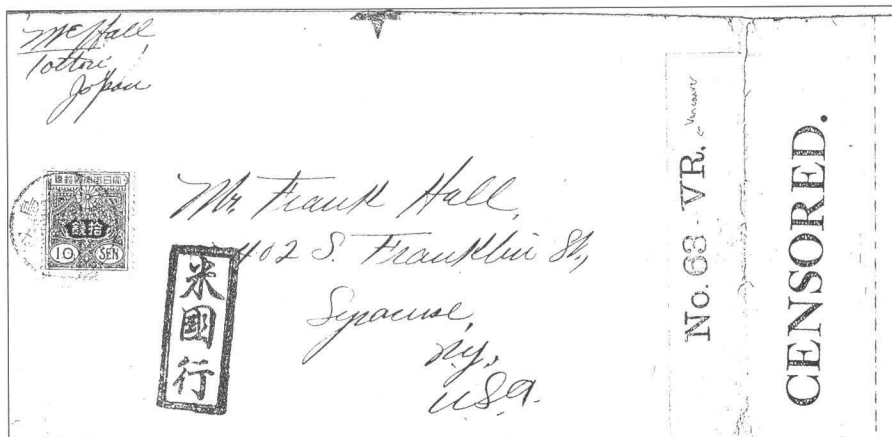 ME Hall
Tottori
Japan
大日本帝國郵便
拾錢
10 SEN
Mr. Frank Hall,
402 S. Franklin St,
Syracuse,
N.Y.,
U.S.A.
米國行
No. 63 - VR.
Vancouver
CENSORED.